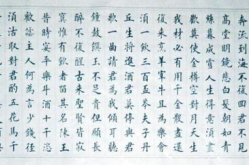 流到海不復回君不見
高堂明鏡悲白髮朝如青
絲暮成雪人生得意須盡
歡莫使金樽空對月天生
我材必有用千金散盡還
復來烹羊宰牛且為樂會
須一飲三百盃岑夫子丹
丘生將進酒君莫停與君
歌一曲請君為我傾耳聽
鐘鼓饌玉不足貴但願長
醉不復醒古來聖賢皆寂
寞惟有飲者留其名陳王
昔時宴平樂斗酒十千恣
歡謔主人何為言少錢徑
須沽取對君酌五花馬千